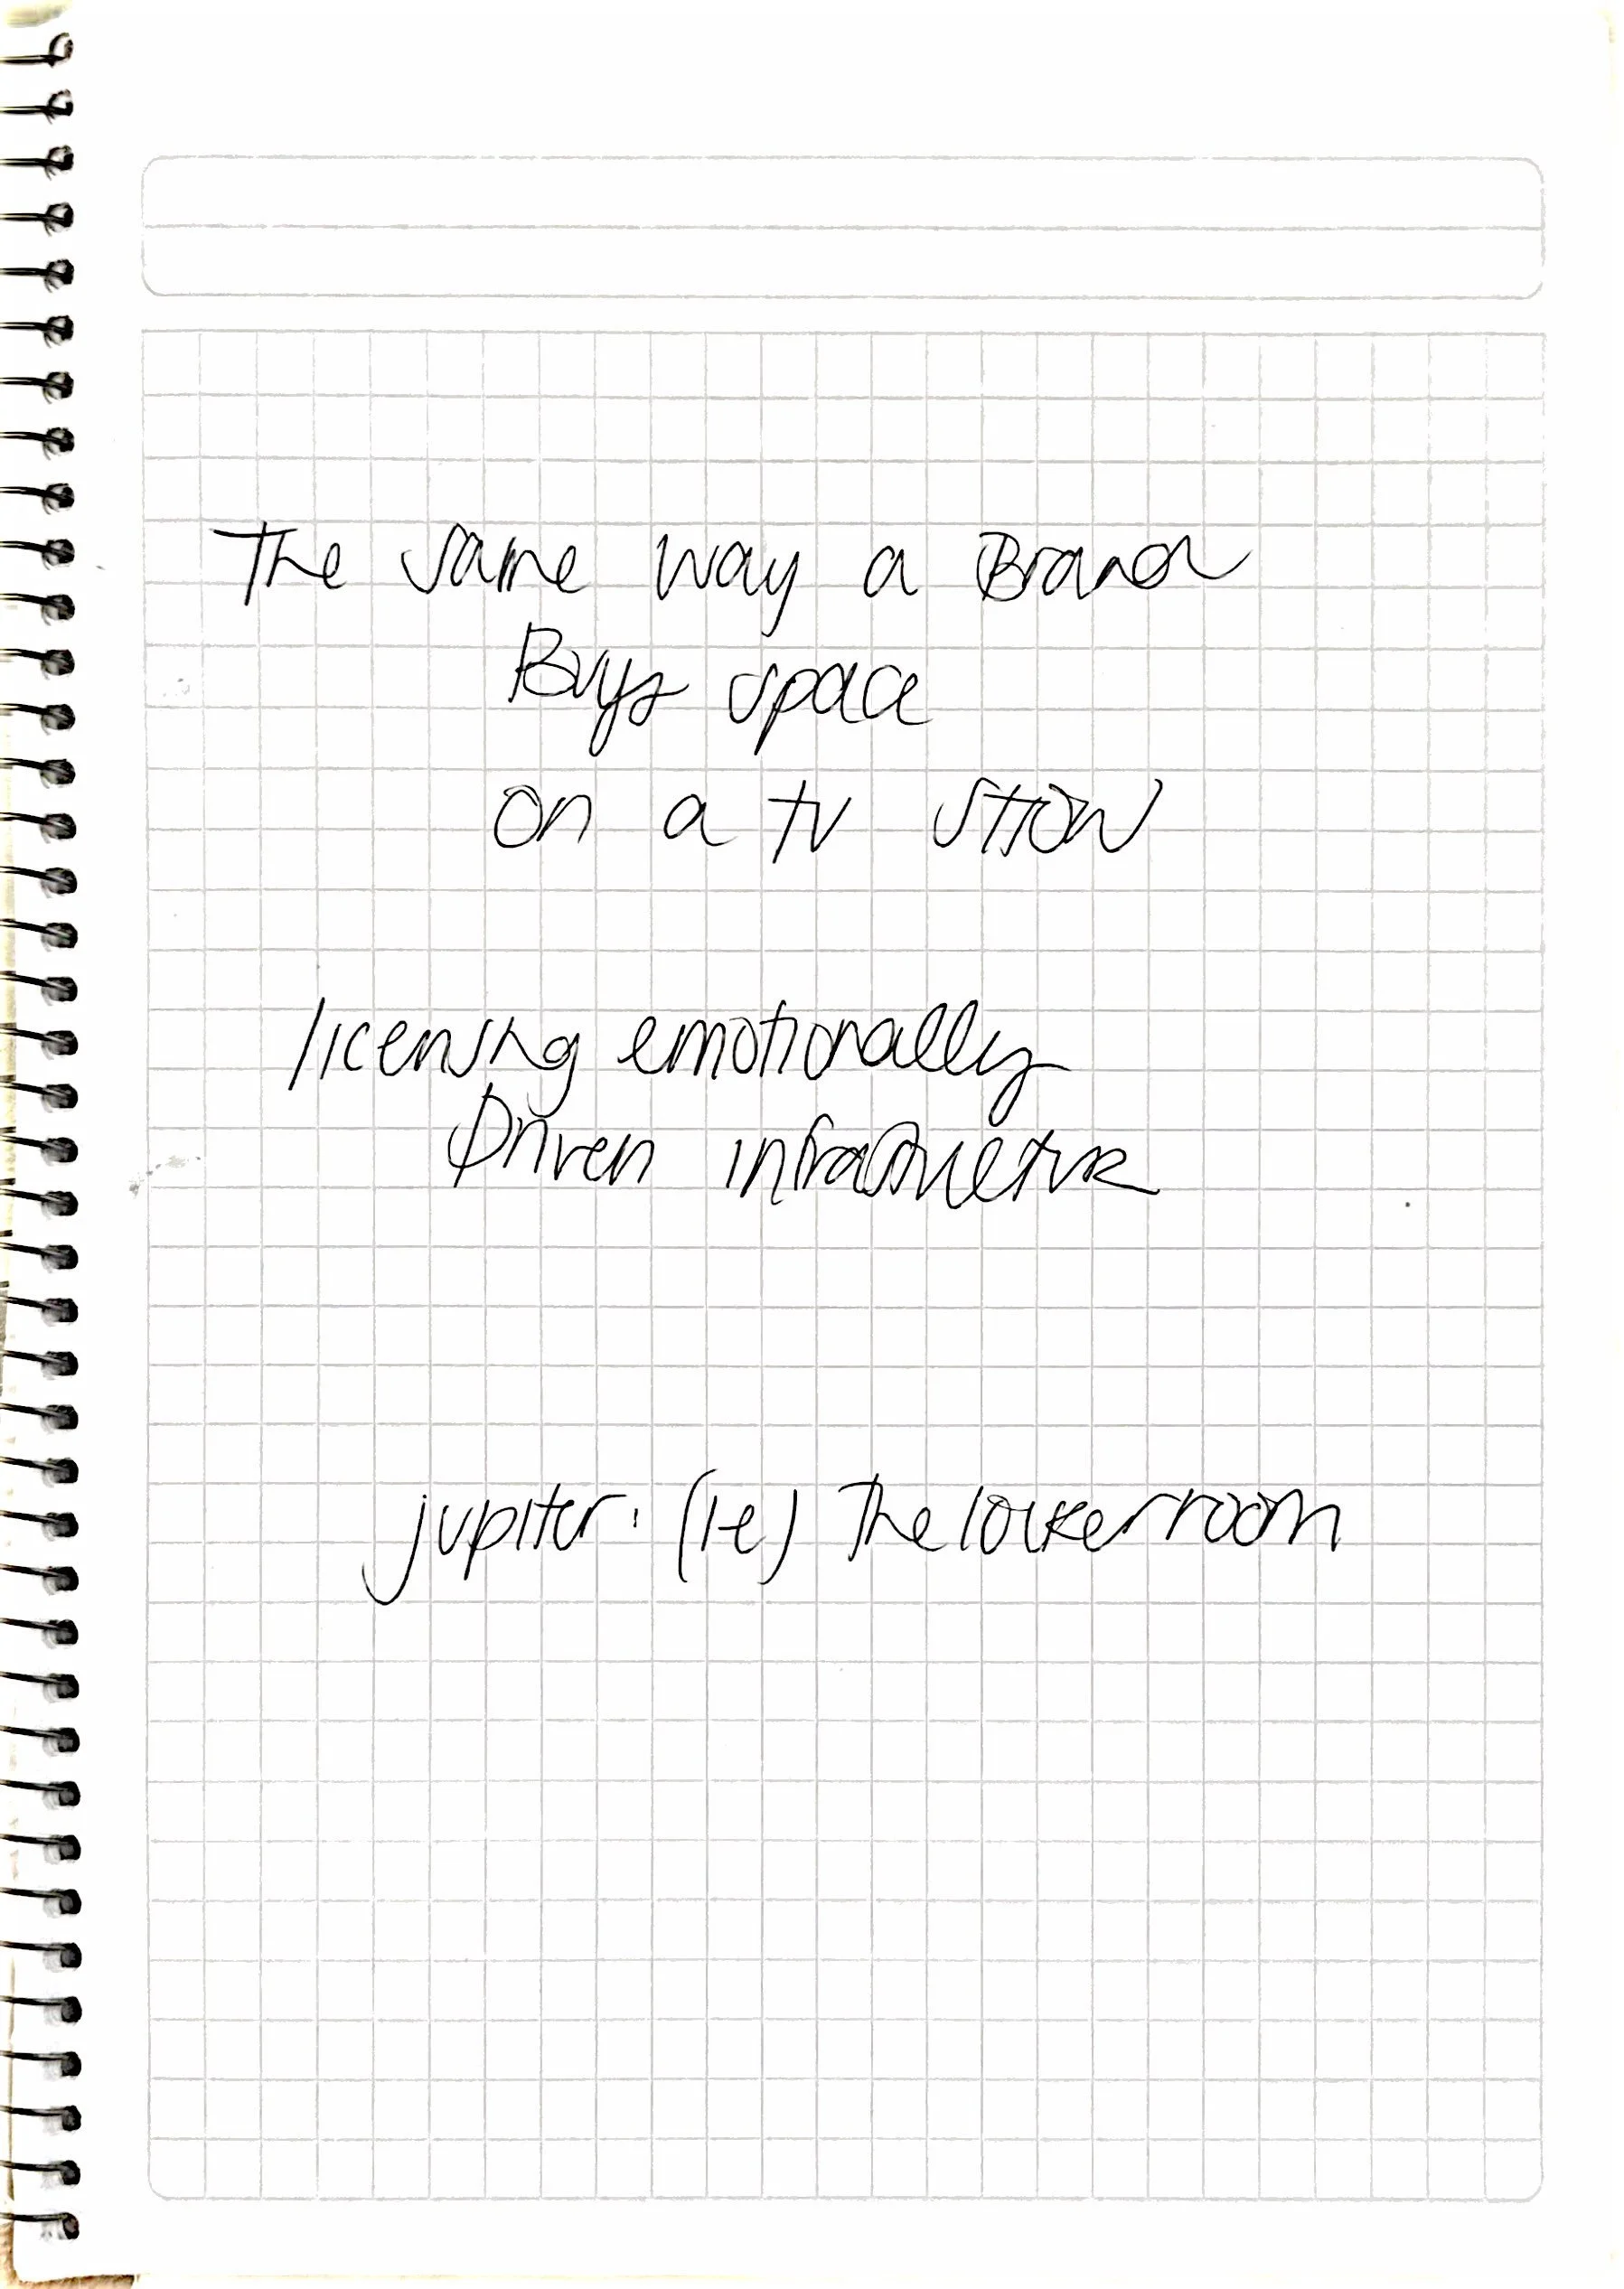 The same way a Brand
Buys space
on a tv SHOW
licensing emotionally
Driven infrastructure
jupiter: (ie) The lockerroom